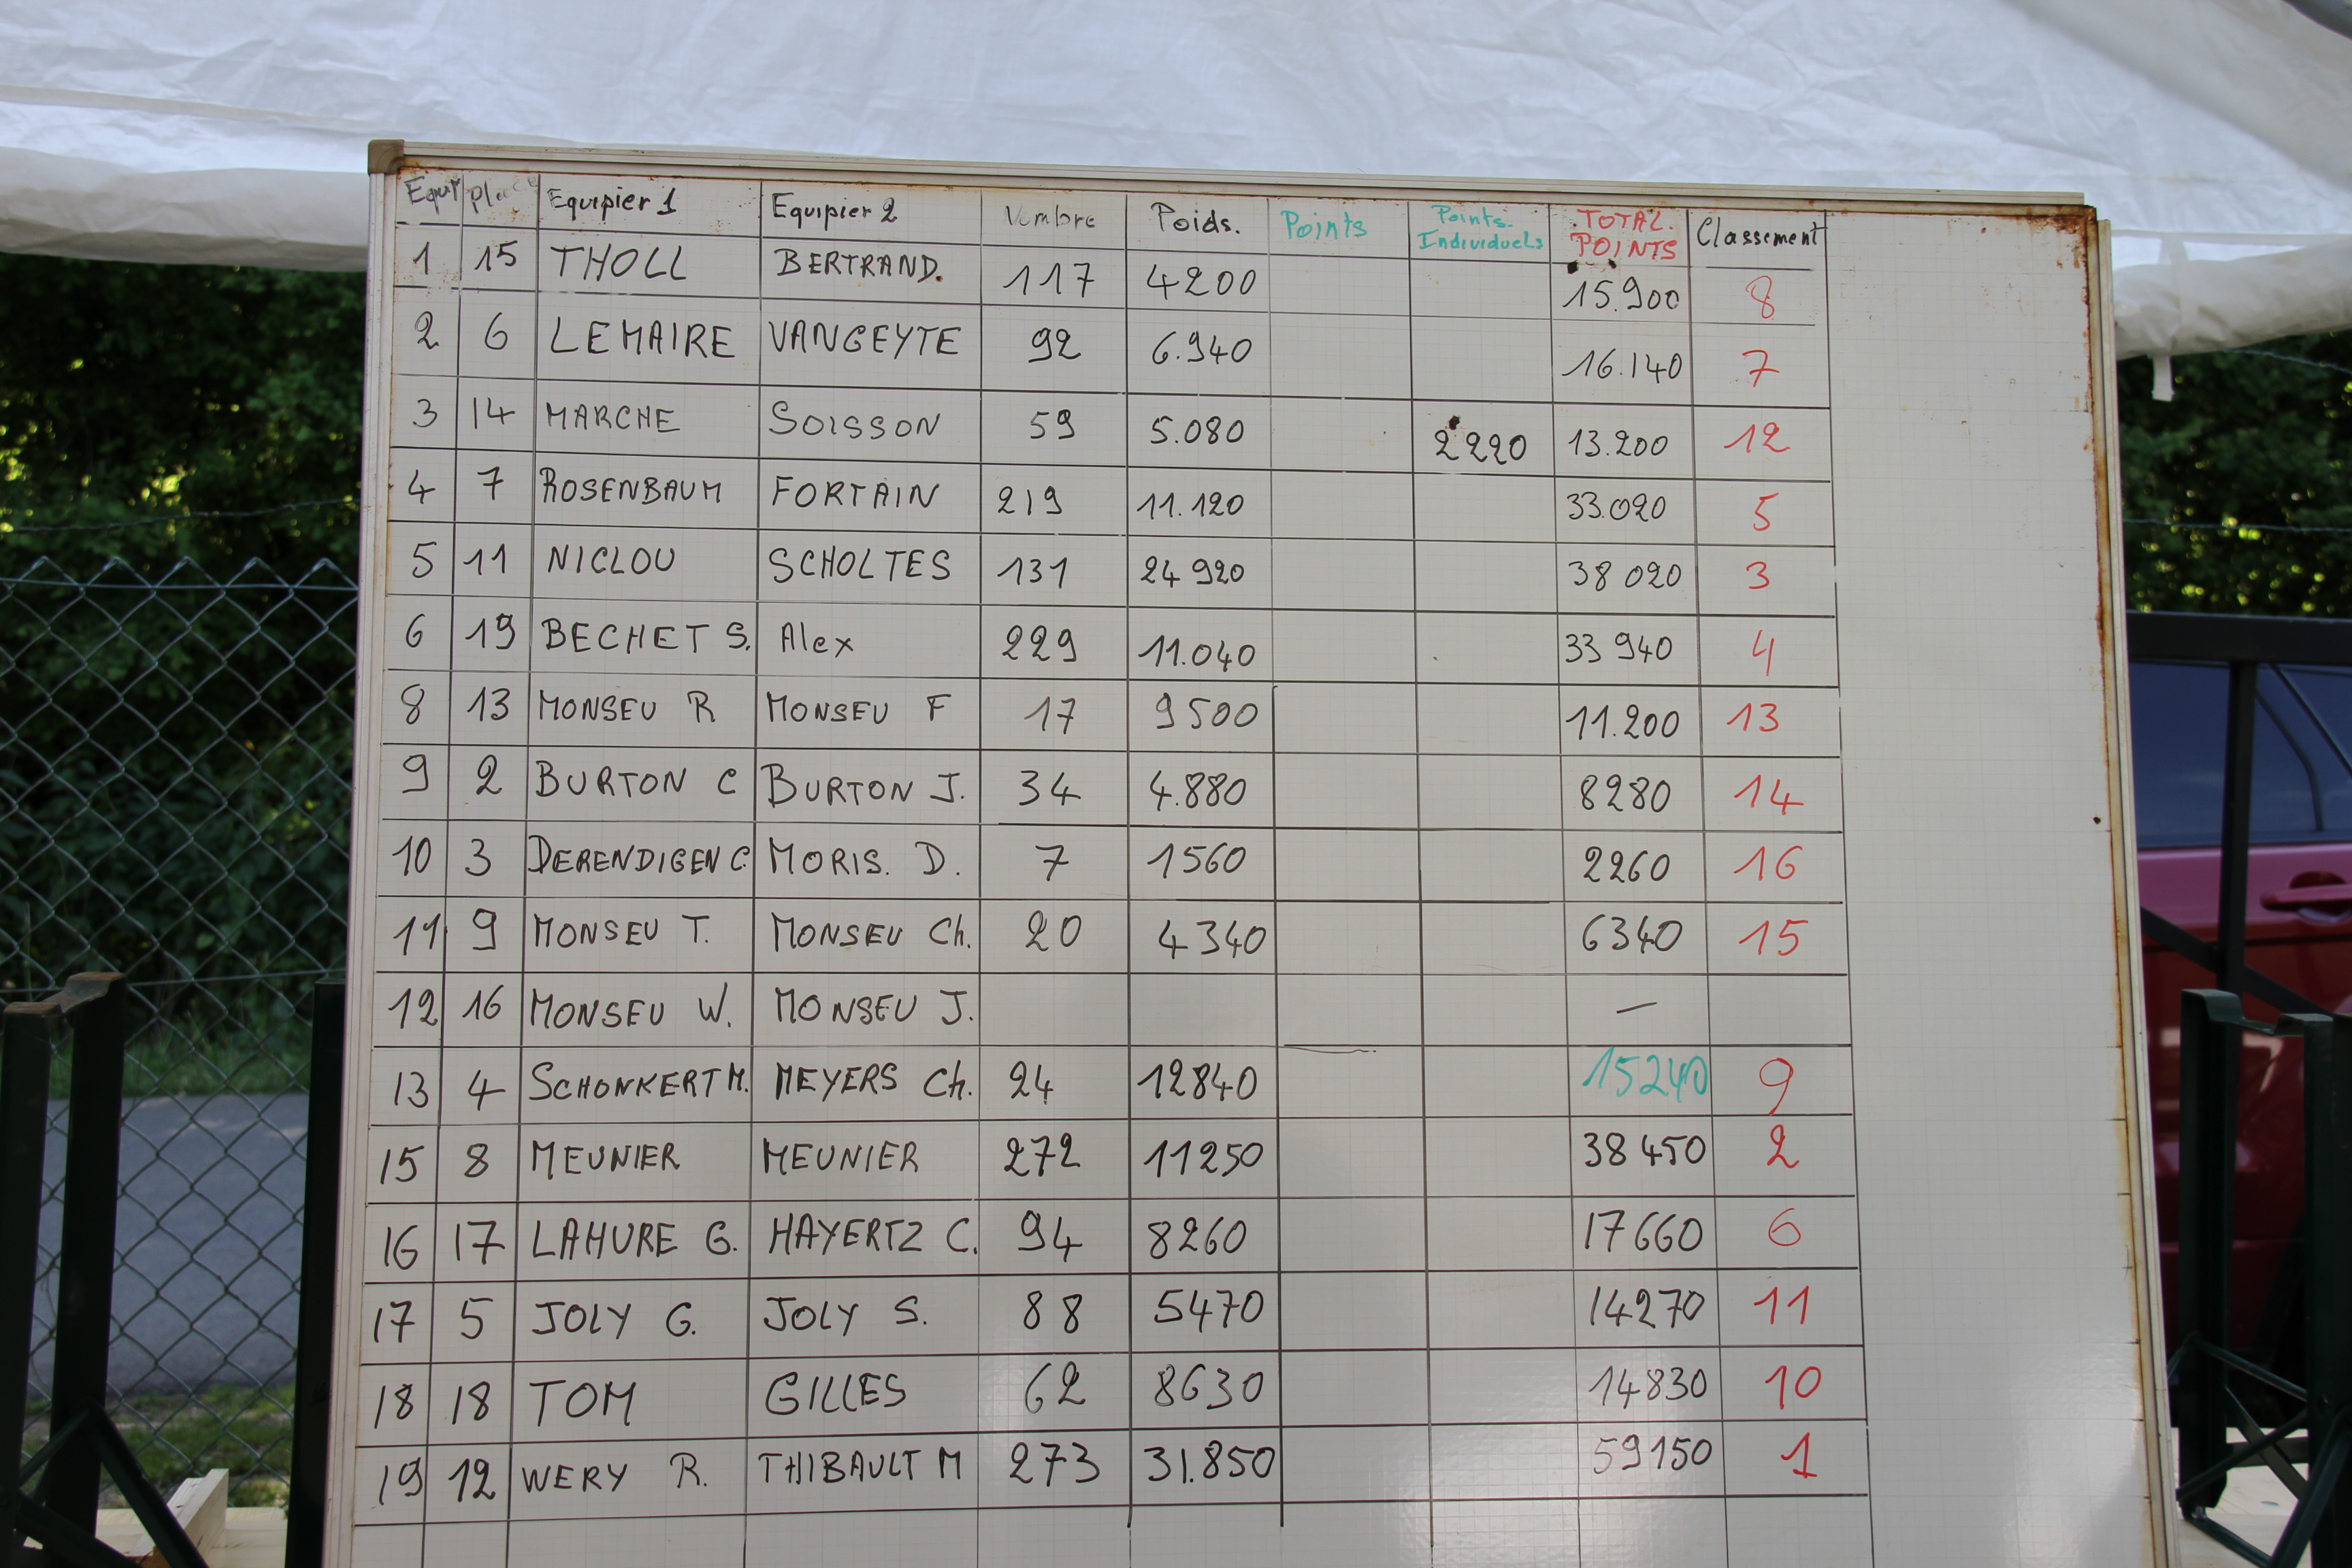 Equip Place Equipier 1 Equipier 2 Nombre Poids. Points Points. Individuels TOTAL. POINTS Classement
1 15 THOLL BERTRAND. 117 4200 15.900 8
2 6 LEMAIRE VANGEYTE 92 6.940 16.140 7
3 14 MARCHE SOISSON 59 5.080 2220 13.200 12
4 7 ROSENBAUM FORTAIN 219 11.120 33.020 5
5 11 NICLOU SCHOLTES 131 24 920 38 020 3
6 19 BECHET S. Alex 229 11.040 33 940 4
8 13 MONSEU R MONSEU F 17 9500 11.200 13
9 2 BURTON C BURTON J. 34 4.880 8280 14
10 3 DERENDIGEN C. MORIS. D. 7 1560 2260 16
11 9 MONSEU T. MONSEU Ch. 20 4340 6340 15
12 16 MONSEU W. MONSEU J. —
13 4 SCHONKERT M. MEYERS Ch. 24 12840 15240 9
15 8 MEUNIER MEUNIER 272 11250 38 450 2
16 17 LAHURE G. HAYERTZ C. 94 8260 17660 6
17 5 JOLY G. JOLY S. 88 5470 14270 11
18 18 TOM GILLES 62 8630 14830 10
19 12 WERY R. THIBAULT M 273 31.850 59150 1